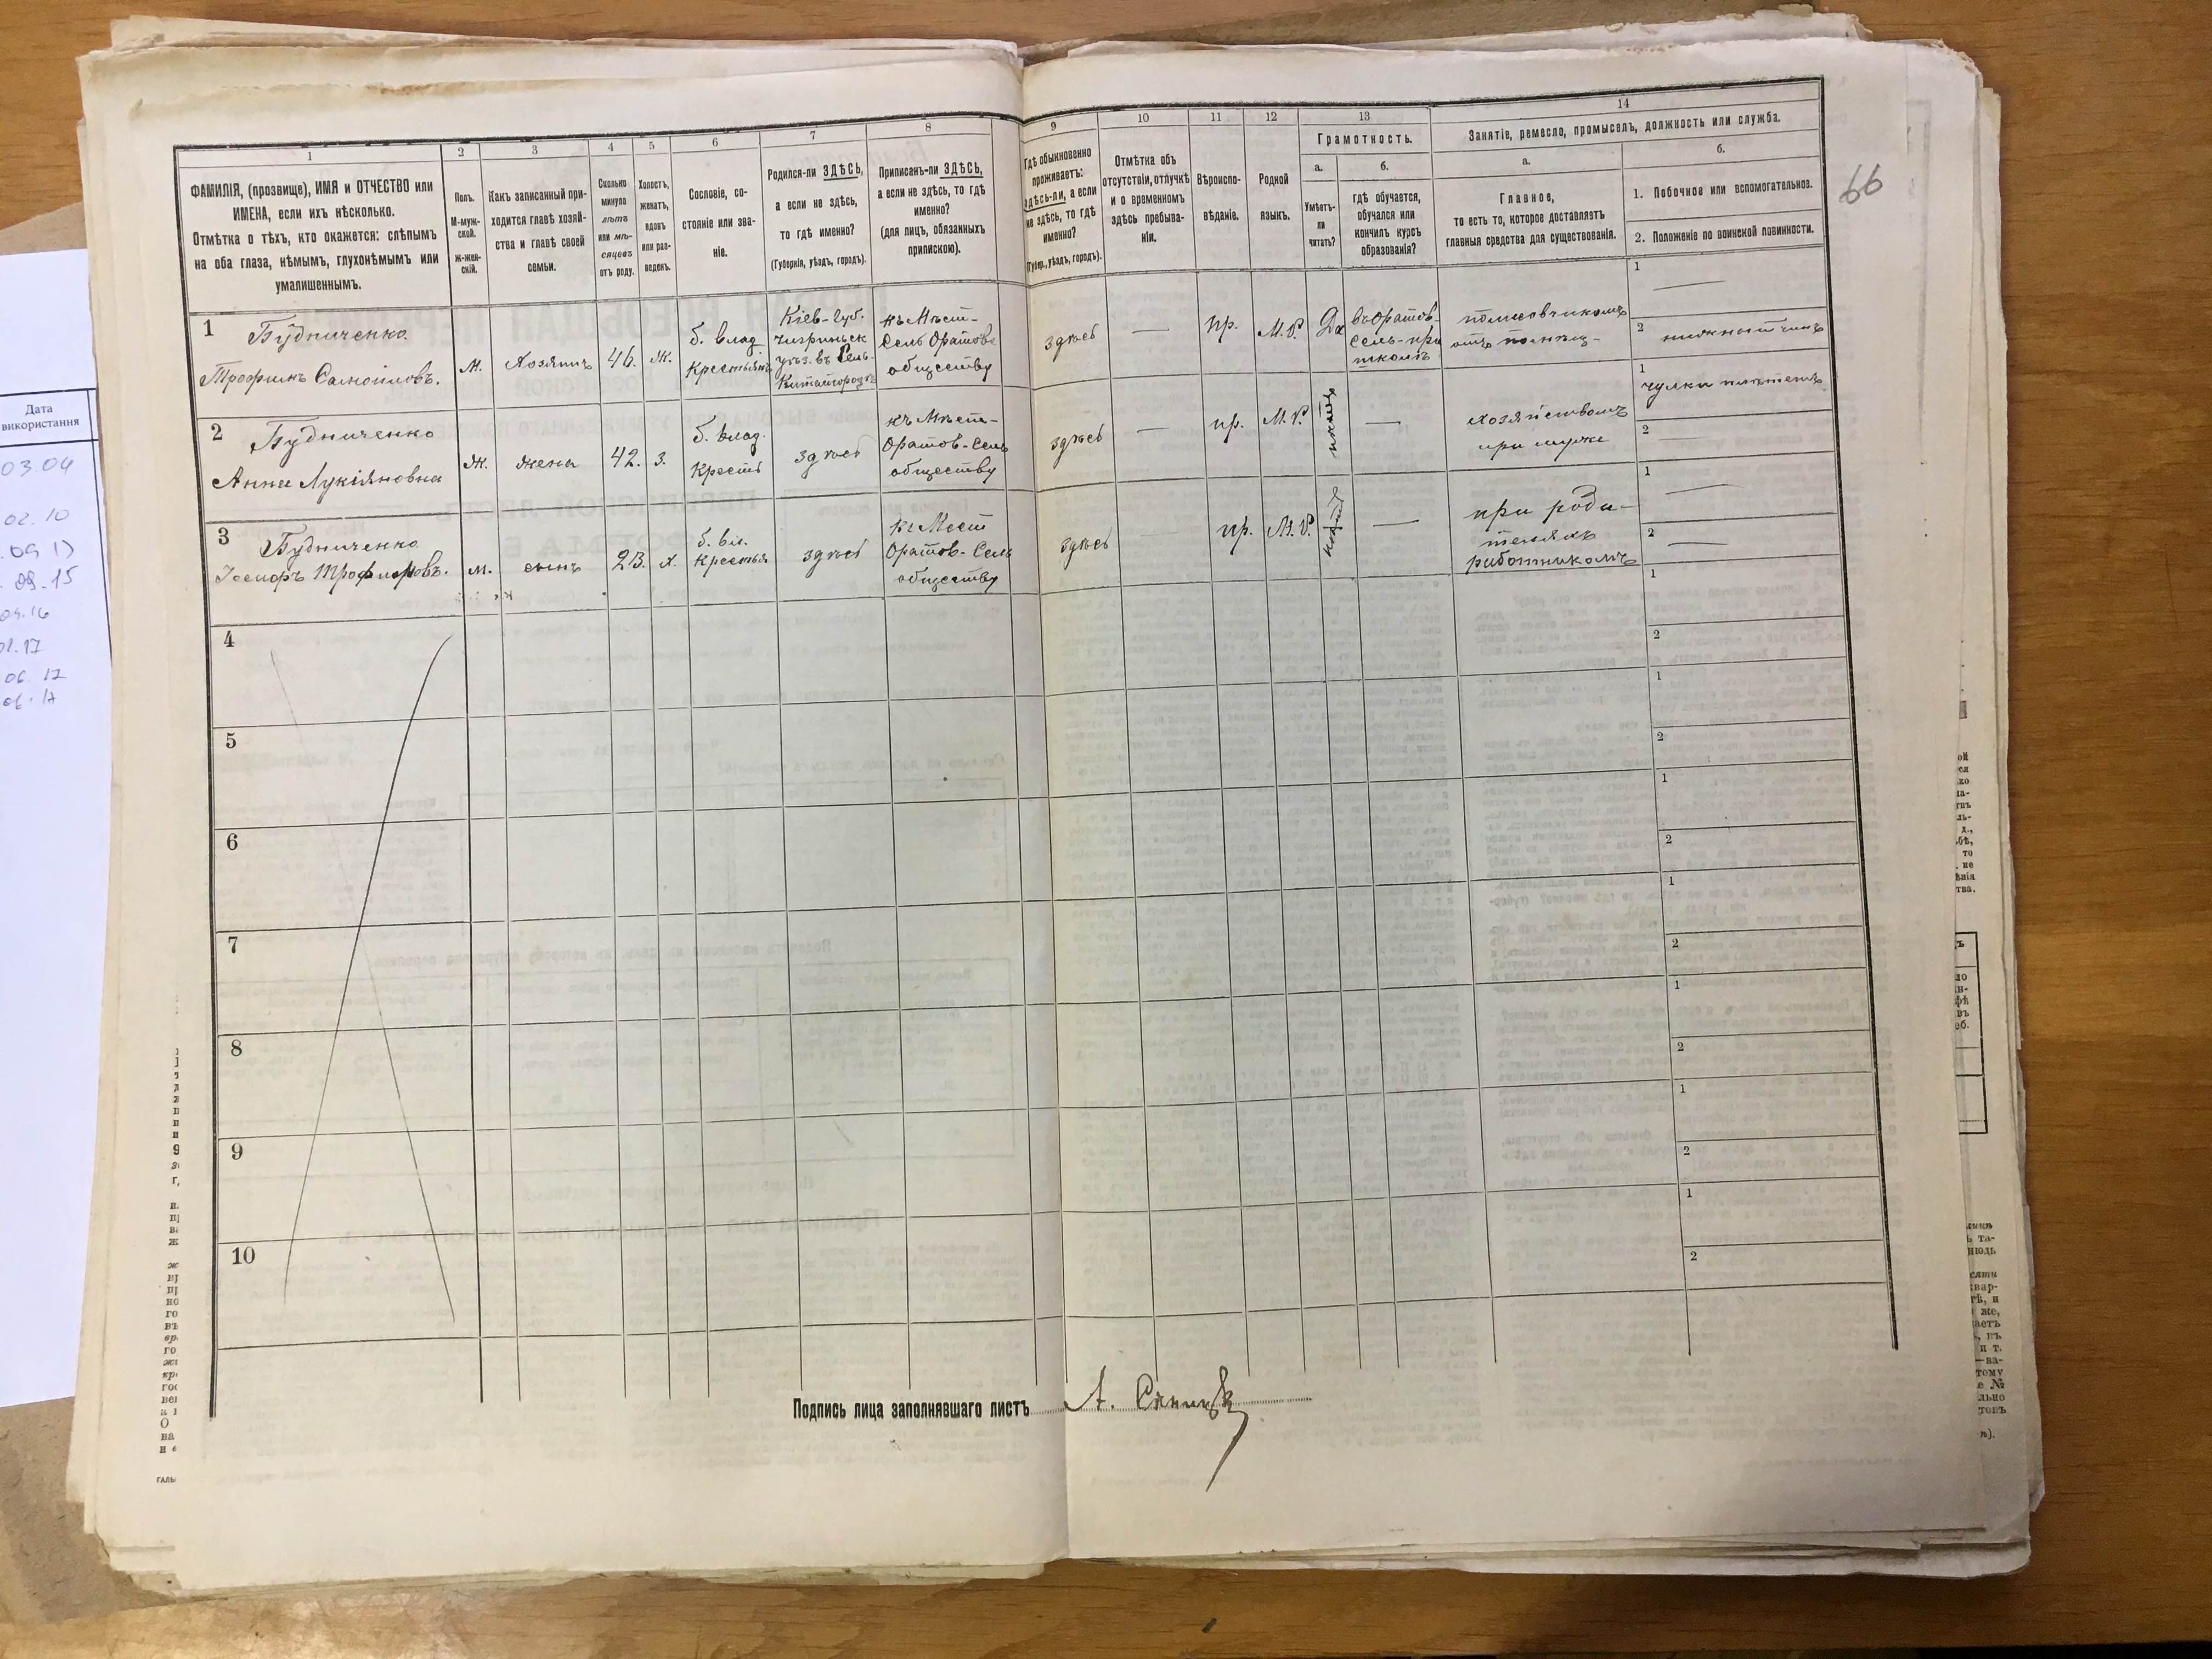 Дата
використання
03.04
02.10
03.15
04.16
01.17
06.17
06.17
66
1
2
3
4
5
6
7
8
9
10
11
12
13
14
ФАМИЛІЯ, (прозвище), ИМЯ и ОТЧЕСТВО или
ИМЕНА, если ихъ нѣсколько.
Отмѣтка о тѣхъ, кто окажется: слѣпымъ
на оба глаза, нѣмымъ, глухонѣмымъ или
умалишеннымъ.
Полъ.
М-муж-
ской.
ж-жен-
скій.
Какъ записанный при-
ходится главѣ хозяй-
ства и главѣ своей
семьи.
Сколько
минуло
лѣтъ
или мѣ-
сяцевъ
отъ роду.
Холостъ,
женатъ,
вдовъ
или раз-
веденъ.
Сословіе, со-
стояніе или зва-
ніе.
Родился-ли ЗДѢСЬ,
а если не здѣсь,
то гдѣ именно?
(Губернія, уѣздъ, городъ).
Приписанъ-ли ЗДѢСЬ,
а если не здѣсь, то гдѣ
именно?
(для лицъ, обязанныхъ
припискою).
Гдѣ обыкновенно
проживаетъ:
здѣсь-ли, а если
не здѣсь, то гдѣ
именно?
(Губер., уѣздъ, городъ).
Отмѣтка объ
отсутствіи, отлучкѣ
и о временномъ
здѣсь пребыва-
ніи.
Вѣроиспо-
вѣданіе.
Родной
языкъ.
Грамотность.
а.
Умѣетъ-
ли
читать?
б.
гдѣ обучается,
обучался или
кончилъ курсъ
образованія?
Занятіе, ремесло, промыселъ, должность или служба.
а.
Главное,
то есть то, которое доставляетъ
главныя средства для существованія.
б.
1. Побочное или вспомогательное.
2. Положеніе по воинской повинности.
1
Будниченко
Трофимъ Самойловъ.
М.
Хозяинъ
46.
Ж.
б. влад
Крестьянъ
Кіев-Губ.
Чигринск
уѣз. въ Сель-
Китайгородъ
къ Мѣст-
Сель Оратовс
обществу
здѣсь
—
пр.
М.Р.
Да
въ Оратов-
Сель-при
школѣ
полесовчикомъ
отъ помѣщ-
1 —
2 нижній чинъ
2
Будниченко
Анна Лукіяновна
Ж.
жена
42.
З.
б. влад.
Кресть
здѣсь
къ Мѣст-
Оратов-Сель
обществу
здѣсь
—
пр.
М.Р.
—
хозяйствомъ
при мужѣ
1
чулки плететъ
2
3
Будниченко
Іосифъ Трофимовъ.
м.
сынъ
23.
х.
б. вл.
Крестья
здѣсь
къ Мест
Оратов-Сель
обществу
здѣсь
пр.
М.Р.
—
при роди-
теляхъ
работникомъ
1 —
2 —
4
1
2
5
1
2
6
1
2
7
1
2
8
1
2
9
1
2
10
1
2
Подпись лица заполнявшаго листъ